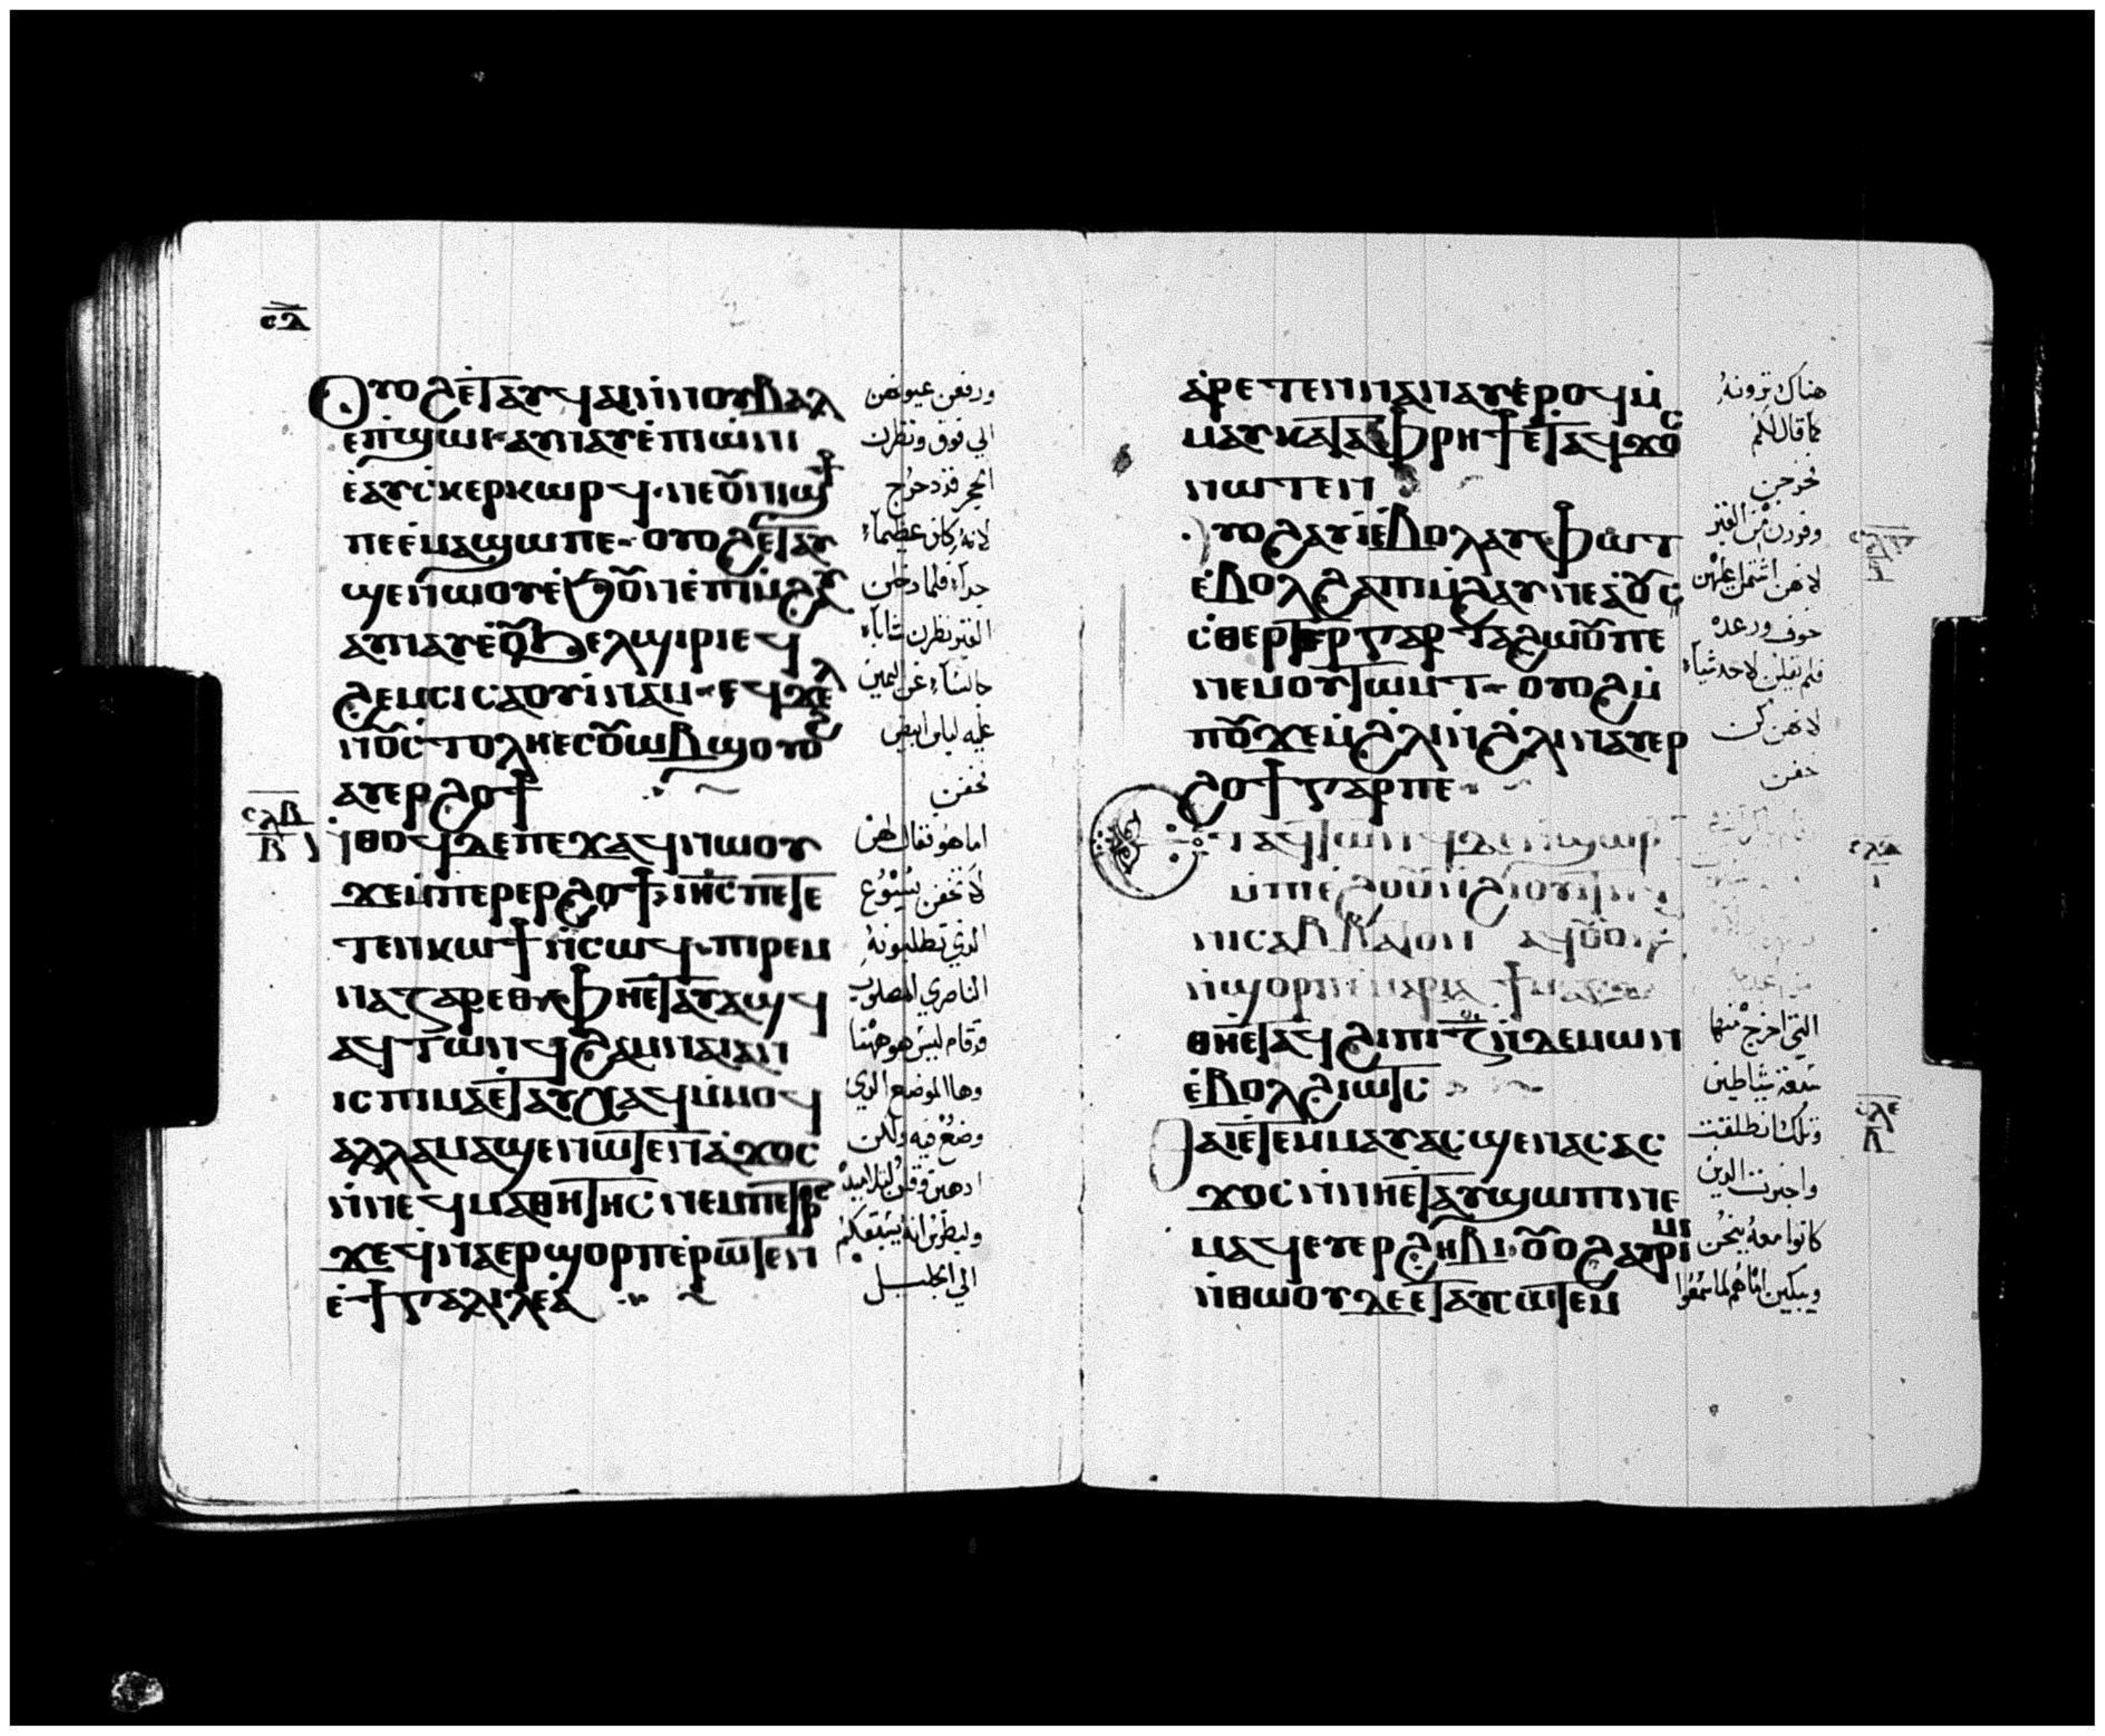 ⲥⲗ
Ⲟⲩⲟϩ ⲉ̇ⲧⲁⲩϥⲁⲓ ⲛ̇ⲛⲟⲩⲃⲁⲗ
ⲉ̇ⲡ̇ϣⲱⲓ· ⲁⲩⲛⲁⲩ ⲉ̇ⲡⲓⲱ̇ⲛⲓ
ⲉ̇ⲁⲩⲥ̇ⲕⲉⲣⲕⲱⲣϥ· ⲛⲉⲟⲩⲛⲓϣϯ
ⲡⲉ ⲉ̇ⲙⲁϣⲱⲡⲉ· ⲟⲩⲟϩ ⲉ̇ⲧⲁⲩ
ϣⲉⲛⲱⲟⲩ ⲉ̇ϧⲟⲩⲛ ⲉ̇ⲡⲓⲙ̇ϩⲁⲩ
ⲁⲩⲛⲁⲩ ⲉ̇ⲟⲩϧⲉⲗϣⲓⲣⲓ ⲉϥ
ϩⲉⲙⲥⲓ ⲥⲁⲟⲩⲓ̇ⲛⲁⲙ· ⲉϥϫⲉⲗ
ⲛ̇ⲟⲩⲥ̇ⲧⲟⲗⲏ ⲉⲥⲟⲩⲱⲃϣ ⲟⲩⲟϩ
ⲁⲩⲉⲣϩⲟϯ
ⲥⲗⲃ
ⲃ
ⲛ̇ⲑⲟϥ ⲇⲉ ⲡⲉϫⲁϥ ⲛⲱⲟⲩ
ϫⲉ ⲙ̇ⲡⲉⲣⲉⲣϩⲟϯ· ⲓⲏ̅ⲥ ⲡⲉⲧⲉ
ⲧⲉⲛⲕⲱϯ ⲛ̇ⲥⲱϥ· ⲡⲓⲣⲉⲙ
ⲛⲁⲍⲁⲣⲉⲑ ⲫⲏⲉ̇ⲧⲁⲩⲁϣϥ
ⲁϥⲧⲱⲛϥ ϩⲁⲙⲛⲁⲓ ⲁⲛ
ⲓⲥ ⲡⲓⲙⲁ ⲉ̇ⲧⲁⲩⲭⲁϥ ⲙ̇ⲙⲟϥ
ⲁⲗⲗⲁ ⲙⲁϣⲉⲛⲱⲧⲉⲛ ⲁ̇ϫⲟⲥ
ⲛ̇ⲛⲉϥⲙⲁⲑⲏⲧⲏⲥ ⲛⲉⲙ ⲡⲉⲧⲣⲟⲥ
ϫⲉ ϥⲛⲁⲉⲣϣⲟⲣⲡ ⲉ̇ⲣⲱⲧⲉⲛ
ⲉ̇ϯⲅⲁⲗⲓⲗⲉⲁ̇
ورفعن عيونهن
الي فوق ونظرن
الحجر قد دحرج
لانه كان عظيماً
جداً فلما دخلن
القبر نظرن شاباً
جالساً عن اليمين
عليه لباس ابيض
فخفن
اما هو فقال لهن
لا تخفن يسوع
الذي تطلبونه
الناصري المصلوب
قد قام ليس هو ههنا
وها الموضع الذي
وضع فيه ولكن
اذهبن وقلن لتلاميذه
ولبطرس انه يسبقكم
الي الجليل
ⲁ̇ⲣⲉⲧⲉⲛⲛⲁⲛⲁⲩ ⲉ̇ⲣⲟϥ ⲙ̇
ⲙⲁⲩ ⲕⲁⲧⲁ ⲫⲣⲏϯ ⲉ̇ⲧⲁϥϫⲟⲥ
ⲛⲱⲧⲉⲛ
ⲟⲩⲟϩ ⲁⲩⲓ̇ ⲉ̇ⲃⲟⲗ ⲁⲩⲫⲱⲧ
ⲉ̇ⲃⲟⲗ ϩⲁ ⲡⲓⲙ̇ϩⲁⲩ ⲛⲉ ⲁ̇ⲟⲩ
ⲥ̇ⲑⲉⲣⲧⲉⲣ ⲅⲁⲣ ⲧⲁϩⲱⲟⲩ ⲡⲉ
ⲛⲉⲙ ⲟⲩⲧⲱⲙⲧ· ⲟⲩⲟϩ ⲙ̇
ⲡⲟⲩϫⲉ ϩ̇ⲗⲓ ⲛ̇ϩ̇ⲗⲓ ⲛⲁⲩⲉⲣ
ϩⲟϯ ⲅⲁⲣ ⲡⲉ·
ⲉⲧⲁϥⲧⲱⲛϥ ⲇⲉ ⲛ̇ϣⲱⲣⲡ
ⲙ̇ⲡⲓⲉ̇ϩⲟⲟⲩ ⲛ̇ϩⲟⲩⲓⲧ
ⲛ̇ⲛⲓⲥⲁⲃⲃⲁⲧⲟⲛ ⲁϥⲟⲩⲟⲛϩϥ
ⲛ̇ϣⲟⲣⲡ ⲙ̇ⲙⲁⲣⲓⲁ ϯⲙⲁⲅⲇⲁ
ⲑⲏⲉ̇ⲧⲁϥϩⲓ ⲡⲓⲍ̅ ⲛ̇ⲇⲉⲙⲱⲛ
ⲉ̇ⲃⲟⲗ ϩⲓⲱⲧⲥ
ⲥⲗⲉ
ⲑⲁⲓ ⲉ̇ⲧⲉⲙⲙⲁⲩ ⲁⲥϣⲉⲛⲁⲥ ⲁⲥ
ϫⲟⲥ ⲛ̇ⲛⲏⲉ̇ⲧⲁⲩϣⲱⲡⲓ ⲛⲉ
ⲙⲁϥ ⲉⲩⲉⲣϩⲏⲃⲓ· ⲟⲩⲟϩ ⲁⲩⲣⲓⲙⲓ
ⲛ̇ⲑⲱⲟⲩ ⲇⲉ ⲉ̇ⲧⲁⲩⲥⲱⲧⲉⲙ
هناك ترونه
كما قال لكم
فخرجن
وفررن من القبر
لانهن اشتمل عليهن
خوف ورعده
فلم يقلن لاحد شياً
لانهن كن
خفن
التي اخرج منها
سبعة شياطين
وتلك انطلقت
واخبرت الذين
كانوا معه ينحن
ويبكين اما هم لما سمعوا